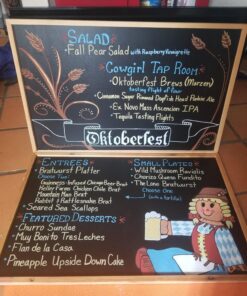 SALAD
- Fall Pear Salad with Raspberry Vinaigrette
Cowgirl Tap Room
- Oktoberfest Brews (Marzen)
tasting flight of four
- Cinnamon Sugar Rimmed Dogfish Head Punkin Ale
- Ex Novo Mass Ascension IPA
- Tequila Tasting Flights
Oktoberfest
ENTREES
- Bratwurst Platter
Choose Two:
Guinness-Infused Cheese Beer Brat
Heller Farms Chicken Chile Brat
Mountain Man Brat
Rabbit & Rattlesnake Brat
- Seared Sea Scallops
Featured Desserts
- Churro Sundae
- Muy Bonito Tres Leches
- Flan de la Casa
- Pineapple Upside Down Cake
Small Plates
- Wild Mushroom Raviolis
- Chorizo Queso Fundito
- The Lone Bratwurst
Choose One
(with a tortilla)